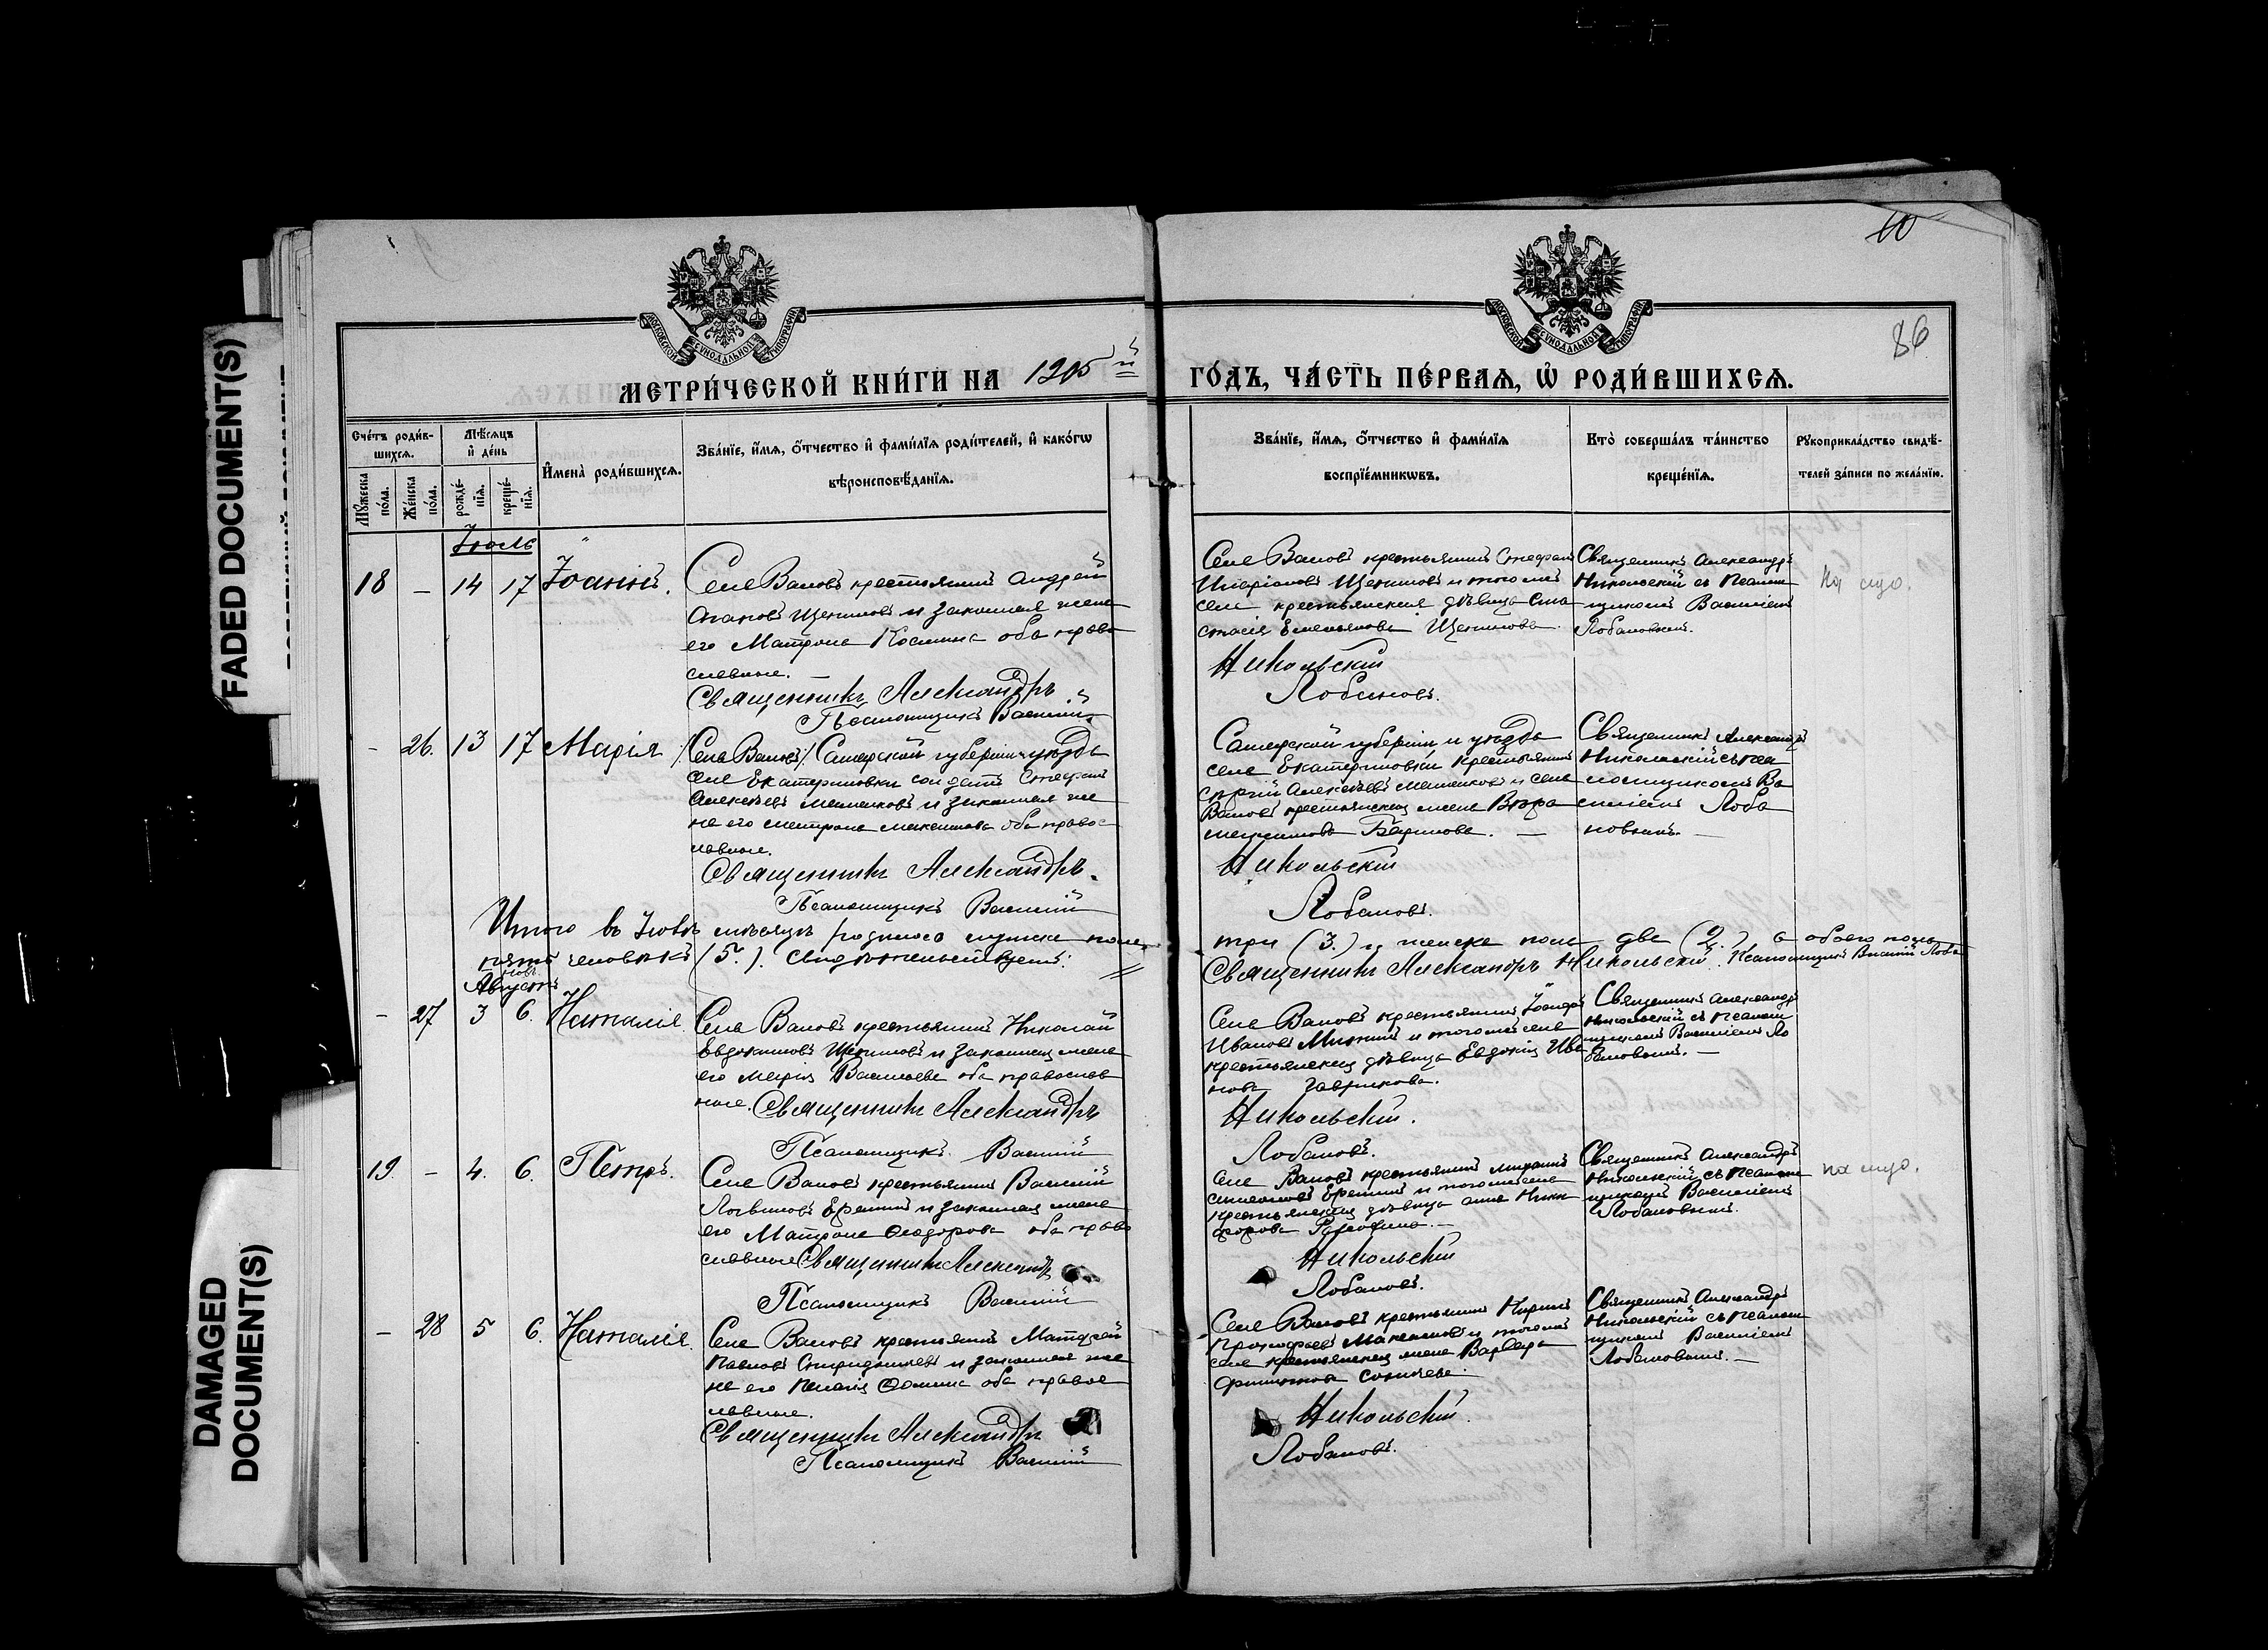 FADED DOCUMENT(S)
DAMAGED
DOCUMENT(S)
10
86
МОСКОВСКОЙ СѴНОДАЛЬНОЙ ТИПОГРАФІИ
МОСКОВСКОЙ СѴНОДАЛЬНОЙ ТИПОГРАФІИ
МЕТРИ́ЧЕСКОЙ КНИ́ГИ НА 1905й ГО́ДЪ, ЧА́СТЬ ПЕ́РВАЯ, Ѡ҆ РОДИ́ВШИХСѦ.
Сче́тъ роди́в-
шихсѧ.
Мꙋжеска по́ла.
Же́нска по́ла.
Мѣ́сѧцъ
и҆ де́нь
рожде́-
нїѧ.
креще́-
нїѧ.
И҆мена̀ роди́вшихсѧ.
Зва́нїе, и҆́мѧ, ѻ҆́тчество и҆ фами́лїѧ роди́телей, и҆ како́гѡ
вѣроисповѣ́данїѧ.
Зва́нїе, и҆́мѧ, ѻ҆́тчество и҆ фами́лїѧ
воспрїе́мникѡвъ.
Кто̀ соверша́лъ та́инство
креще́нїѧ.
Рꙋкоприкла́дство свидѣ́-
телей за́писи по жела́нїю.
Іюль
18 – 14 17 Іоаннъ.
Села Валовъ крестьянинъ Андрей
Щениновъ и законная жена
его Матрона Косьмина оба право
славные. –
Священникъ Александръ
Псаломщикъ Василій
Села Валовъ крестьянинъ Стефанъ
Иларіоновъ Щениновъ и тогоже
села крестьянская дѣвица Ана
стасія Емельянова Щенинова.
Никольскій
Лобановъ.
Священникъ Александръ
Никольскій съ Псалом
щикомъ Василіемъ
Лобановымъ.
– 26. 13 17 Марія
/Села Валовъ/ Самарской губерніи и уѣзда
села Екатериновки солдатъ Стефанъ
Алексѣевъ и законная же
на его Матрона Максимова оба правос
лавные.
Священникъ Александръ.
Псаломщикъ Василій
Самарской губерніи и уѣзда
села Екатериновки крестьянинъ
Сергій Алексѣевъ и села
Валовъ крестьянская жена Вѣра
Максимова Баринова. –
Никольскій
Лобановъ.
Священникъ Александръ
Никольскій съ Пса
ломщикомъ Ва
силіемъ Лоба
новымъ. –
Итого въ Іюлѣ мѣсяцѣ родилось мужска пола три (3.) и женска пола двѣ (2.) а обоего пола
пять человѣкъ (5.). Свидѣтельствуемъ: Священникъ Александръ Никольскій. Псаломщикъ Василій Лоба
новъ.
Августъ
– 27 3 6. Наталія.
Села Валовъ крестьянинъ Николай
Евдокимовъ Щениновъ и законная жена
его Марія Васильева оба православ
ные. Священникъ Александръ
Псаломщикъ Василій
Села Валовъ крестьянинъ
Ивановъ и тогоже села
крестьянская дѣвица Евдокія Ива
нова Гаврикова.
Никольскій.
Лобановъ.
Священникъ Александръ
Никольскій съ Псалом
щикомъ Василіемъ Ло
бановымъ. –
19. – 4. 6. Петръ.
Села Валовъ крестьянинъ Василій
Логвиновъ Ереминъ и законная жена
его Матрона Ѳеодорова оба право
славные Священникъ Александръ
Псаломщикъ Василій
Села Валовъ крестьянинъ
Ереминъ и тогоже села
крестьянская дѣвица Анна Ники
форова
Никольскій
Лобановъ.
Священникъ Александръ
Никольскій съ Псалом
щикомъ Василіемъ
Лобановымъ.
– 28 5 6. Наталія.
Села Валовъ крестьянинъ Матѳей
Павловъ Спиридоновъ и законная же
на его Пелагія Ѳомина оба правос
лавные.
Священникъ Александръ
Псаломщикъ Василій
Села Валовъ крестьянинъ
Прокофьевъ Максимовъ и тогоже
села крестьянская жена Варвара
Никольскій.
Лобановъ.
Священникъ Александръ
Никольскій съ Псалом
щикомъ Василіемъ
Лобановымъ. –